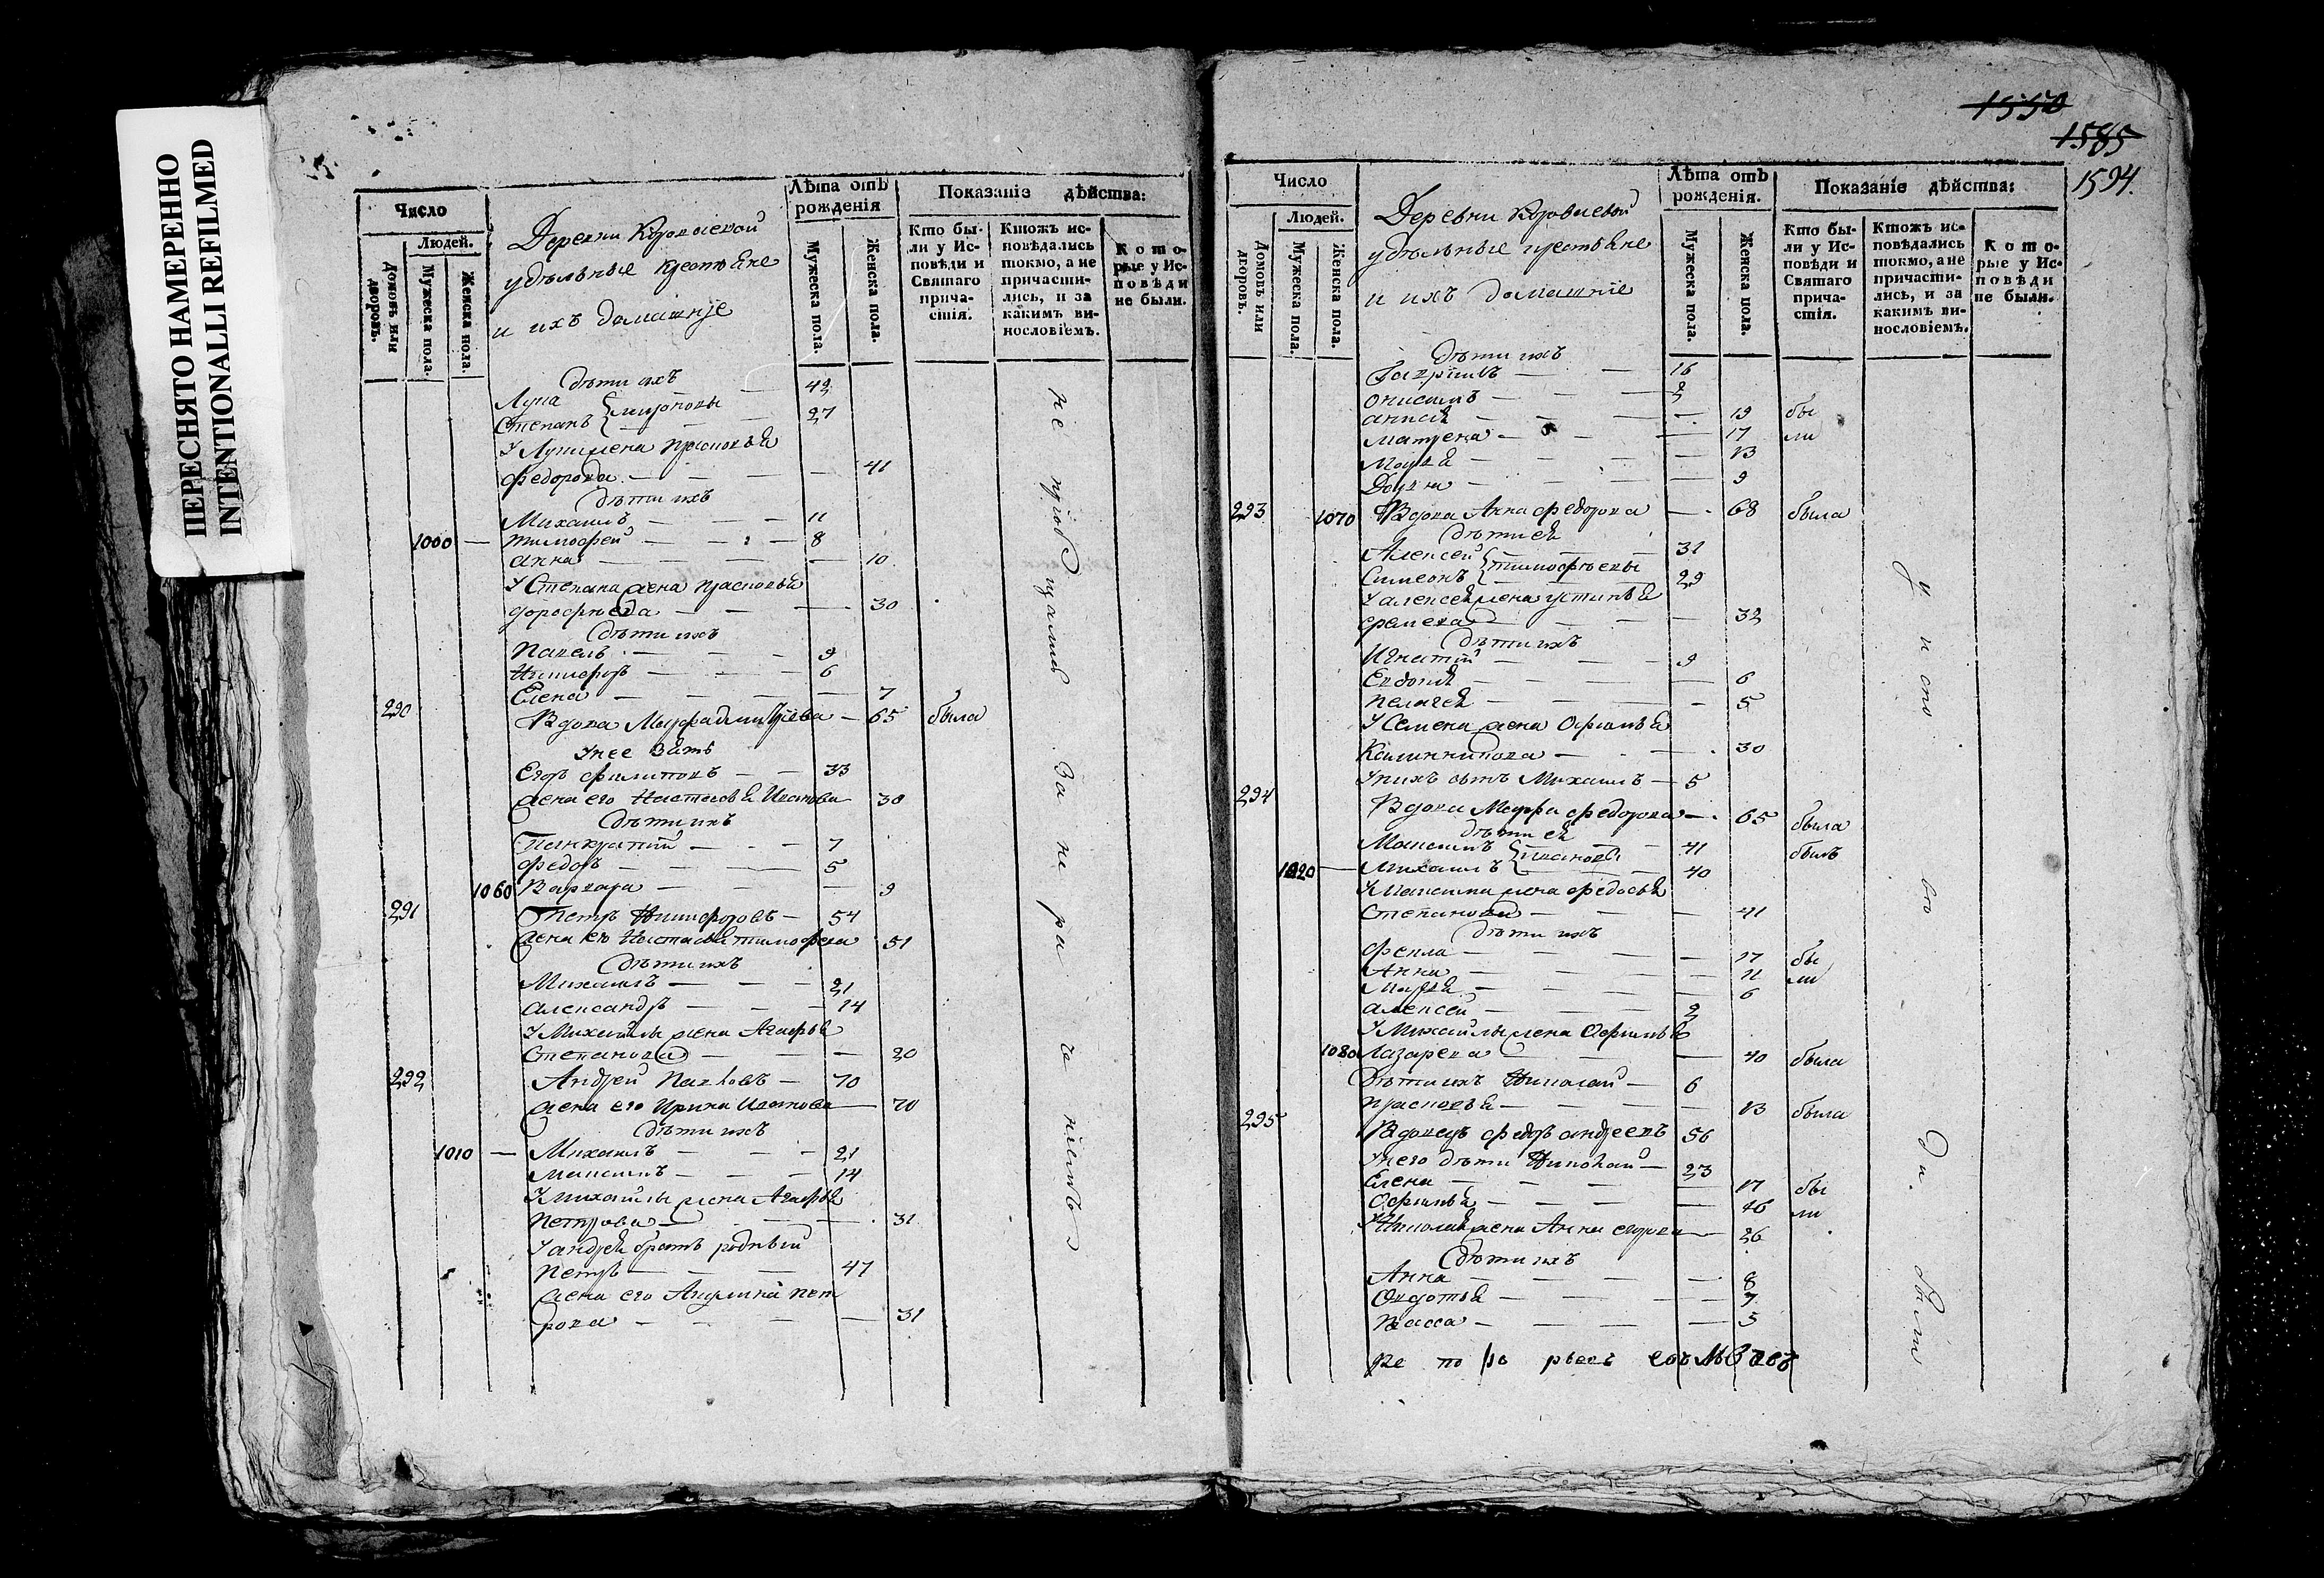 ПЕРЕСНЯТО НАМЕРЕННО
INTENTIONALLI REFILMED
Число
Людей.
Домовъ или дворовъ.
Мужеска пола.
Женска пола.
Деревни
удѣльные крестьяне
и ихъ домашніе
Лѣта отъ рожденія
Мужеска пола.
Женска пола.
Показаніе дѣйства:
Кто были у Исповѣди и Святаго причастія.
Ктожъ исповѣдались токмо, а не причастились, и за какимъ винословіемъ.
Которые у Исповѣди не были.
дѣти ихъ
Лука 42
Степанъ 27
У Луки жена Прасковья
Федорова 41
дѣти ихъ
Михаилъ 11
1000 Тимофей 8
Анна 10
У Степана жена Прасковья
Дорофеева 30
дѣти ихъ
Павелъ 9
Никифоръ 6
Елена 7
290 Вдова 65 была
У нее зять
Егоръ Филиповъ 33
жена его Настасья Иванова 30
дѣти ихъ
Панкратий 7
Федоръ 5
1060 Варвара 9
291 Петръ Никифоровъ 54
жена его Настасья Тимофеева 51
дѣти ихъ
Михаилъ 21
Александръ 14
У Михайлы жена Агафья
Степанова 20
292 Андрей Павловъ 70
жена его Ирина Иванова 70
дѣти ихъ
1010 Михаилъ 21
Максимъ 14
У Михайлы жена Агафья
Петрова 31
У Андрея братъ родный
Петръ 47
жена его Акулина Пет
рова 31
1550
1585
1594.
Число
Людей.
Домовъ или дворовъ.
Мужеска пола.
Женска пола.
Деревни
удѣльные крестьяне
и ихъ домашніе
Лѣта отъ рожденія.
Мужеска пола.
Женска пола.
Показаніе дѣйства:
Кто были у Исповѣди и Святаго причастія.
Ктожъ исповѣдались токмо, а не причастились, и за какимъ винословіемъ.
Которые у Исповѣди не были.
дѣти ихъ
Гаврилъ 16
Онисимъ 2
Анисья 19 бы
Матрена 17 ли
Марья 13
Дарья 9
293 1070 Вдова Анна Федорова 68 была
дѣти ея
Алексей 31
Симеонъ Тимофѣевы 29
У Алексея жена Устинья
Еремеева 32
дѣти ихъ
Игнатій 9
Евдокія 6
Пелагея 5
У Семена жена Офимья
Калинникова 30
У нихъ сынъ Михаилъ 5
294 Вдова Марфа Федорова 65 была
дѣти ея
Максимъ 41 былъ
1020 Михаилъ Ивановы 40
У Максима жена Федосья
Степанова 41
дѣти ихъ
Фекла 17 бы
Анна 11 ли
Марья 6
Алексей 2
У Михайлы жена Офимья
1080 Лазарева 40 была
Дѣти ихъ Николай 6
Прасковья 13 была
295 Вдовецъ Федоръ Андреевъ 56
У него дѣти Николай 23
Елена 17 бы
Офимья 16 ли
У Николая жена Анна Егорова 26
дѣти ихъ
Анна 8
Авдотья 7
Васса 5